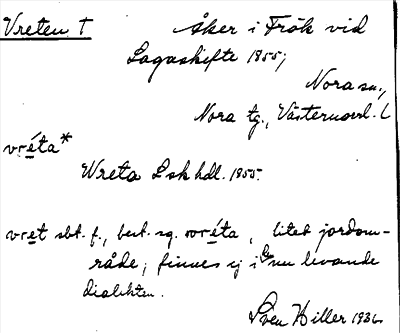 Vreten † Åker i Frök vid
Lagaskifte 1855;
Nora sn.,
Nora tg., Västernorrl. L
vréta*
Wreta Lskhdl. 1855.
vret sbt. f., best. sg. vréta, litet jordom-
råde; finnes ej i den levande
dialekten.
Sven Hiller 1936